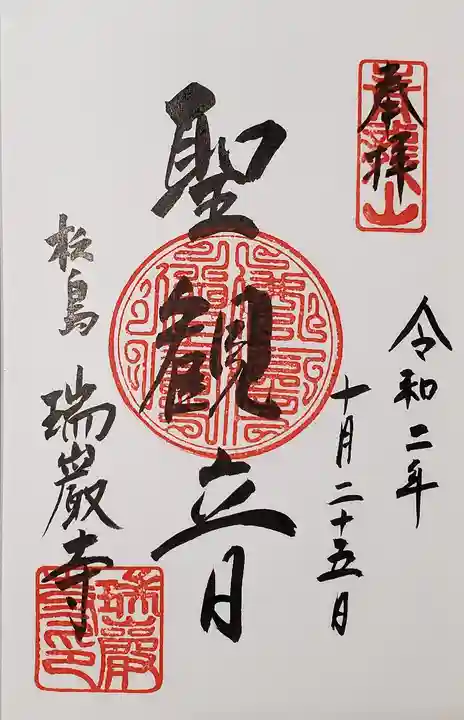 奉拝
青龍山
令和二年
十月二十五日
聖観音
松島
瑞巌寺